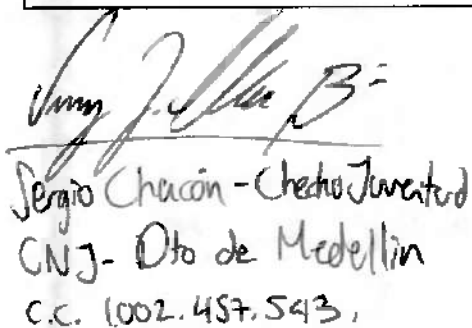 Sergio Chacón - Checho Juventud
CNJ - Dto de Medellin
C.C. 1.002.457.543.